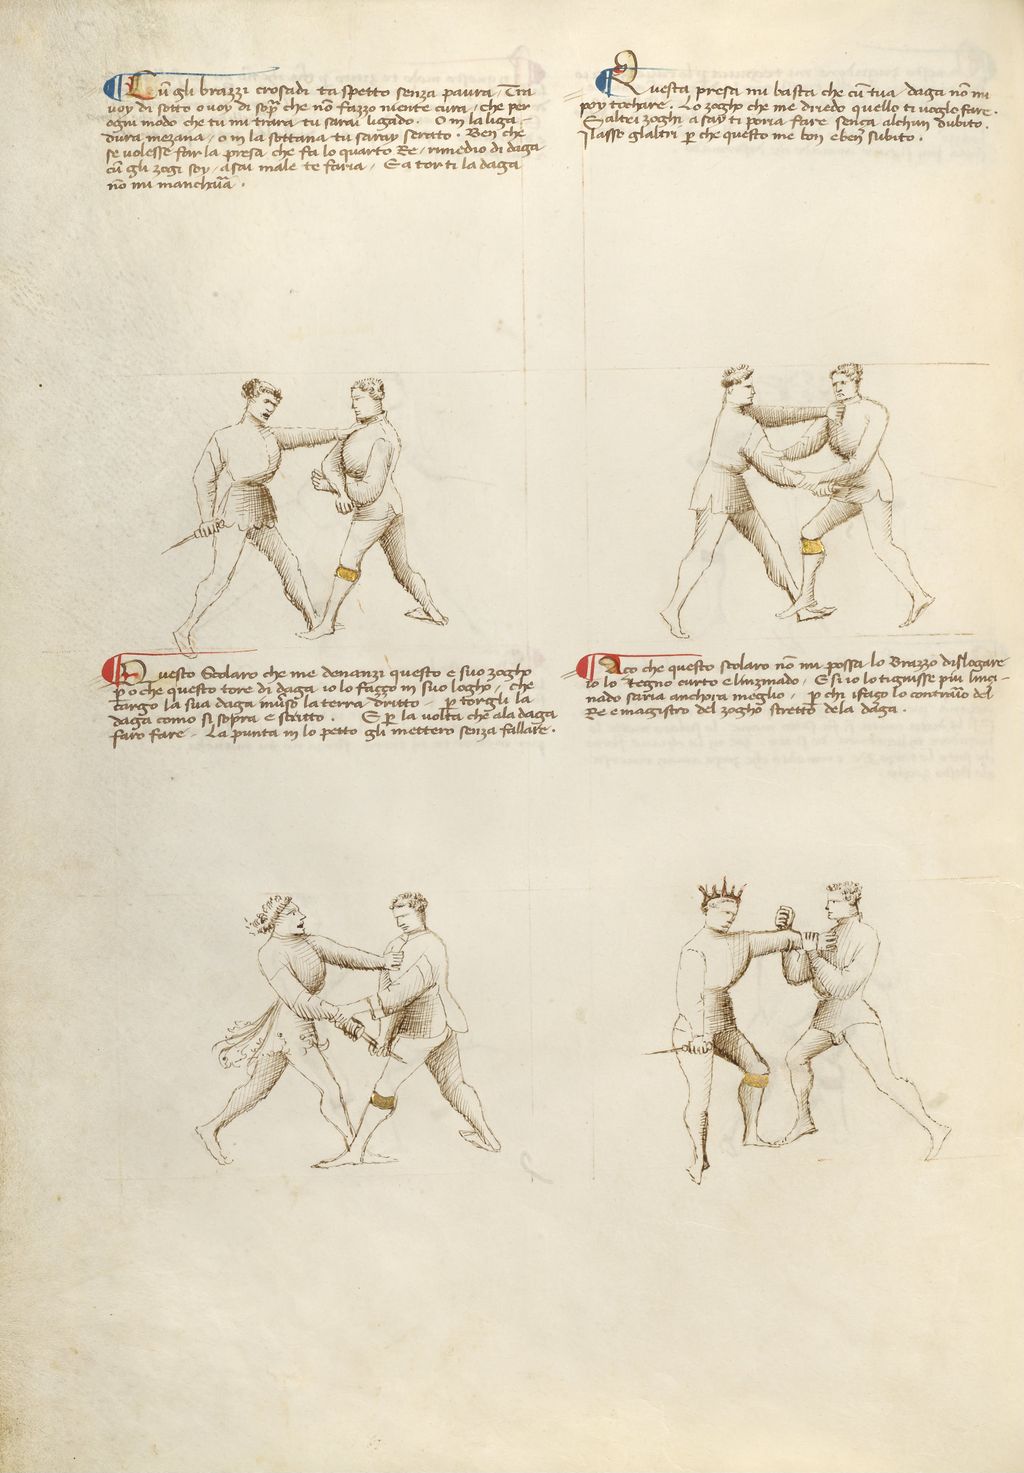 Cũ gli brazzi crosadi ta spetto senza paura / Tra
voy di sotto o voy di sopr̃a che nõ fazzo niente cura / che per
ogni modo che tu mi trara tu sarai ligado. O in la liga-
dura mezana / o in la sottana tu saray serato. Ben che
se volesse far la presa che fa lo quarto Re / rimedio di daga
cũ gli zogi soy / assai male te faria / E a torti la daga
nõ mi mancharia.
Questa presa mi basta che cũ tua daga nõ mi
poy tochare. Lo zogho che me driedo quello ti voglo fare.
E altri zoghi asay ti poria fare senza alchun dubito.
Ilasso gl'altri p̱ che questo me bon e ben subito.
Questo Scolaro che me denanzi questo e suo zogho
p̱ o che questo tore di daga io lo fazzo in suo logho / che
cargo la sua daga in ṽso la terra dritto / p̱ torgli la
daga como si sopra e scritto. E p̱ la volta che ala daga
faro fare / La punta in lo petto gli mettero senza fallare.
Aço che questo scolaro nõ mi possa lo Brazzo dislogare
io lo tegno curto e linzinado / E si io lo tignisse piu linci-
nado saria anchora meglio / p̱ chi i fago lo contrario del
Re e magistro del zogho stretto dela daga.